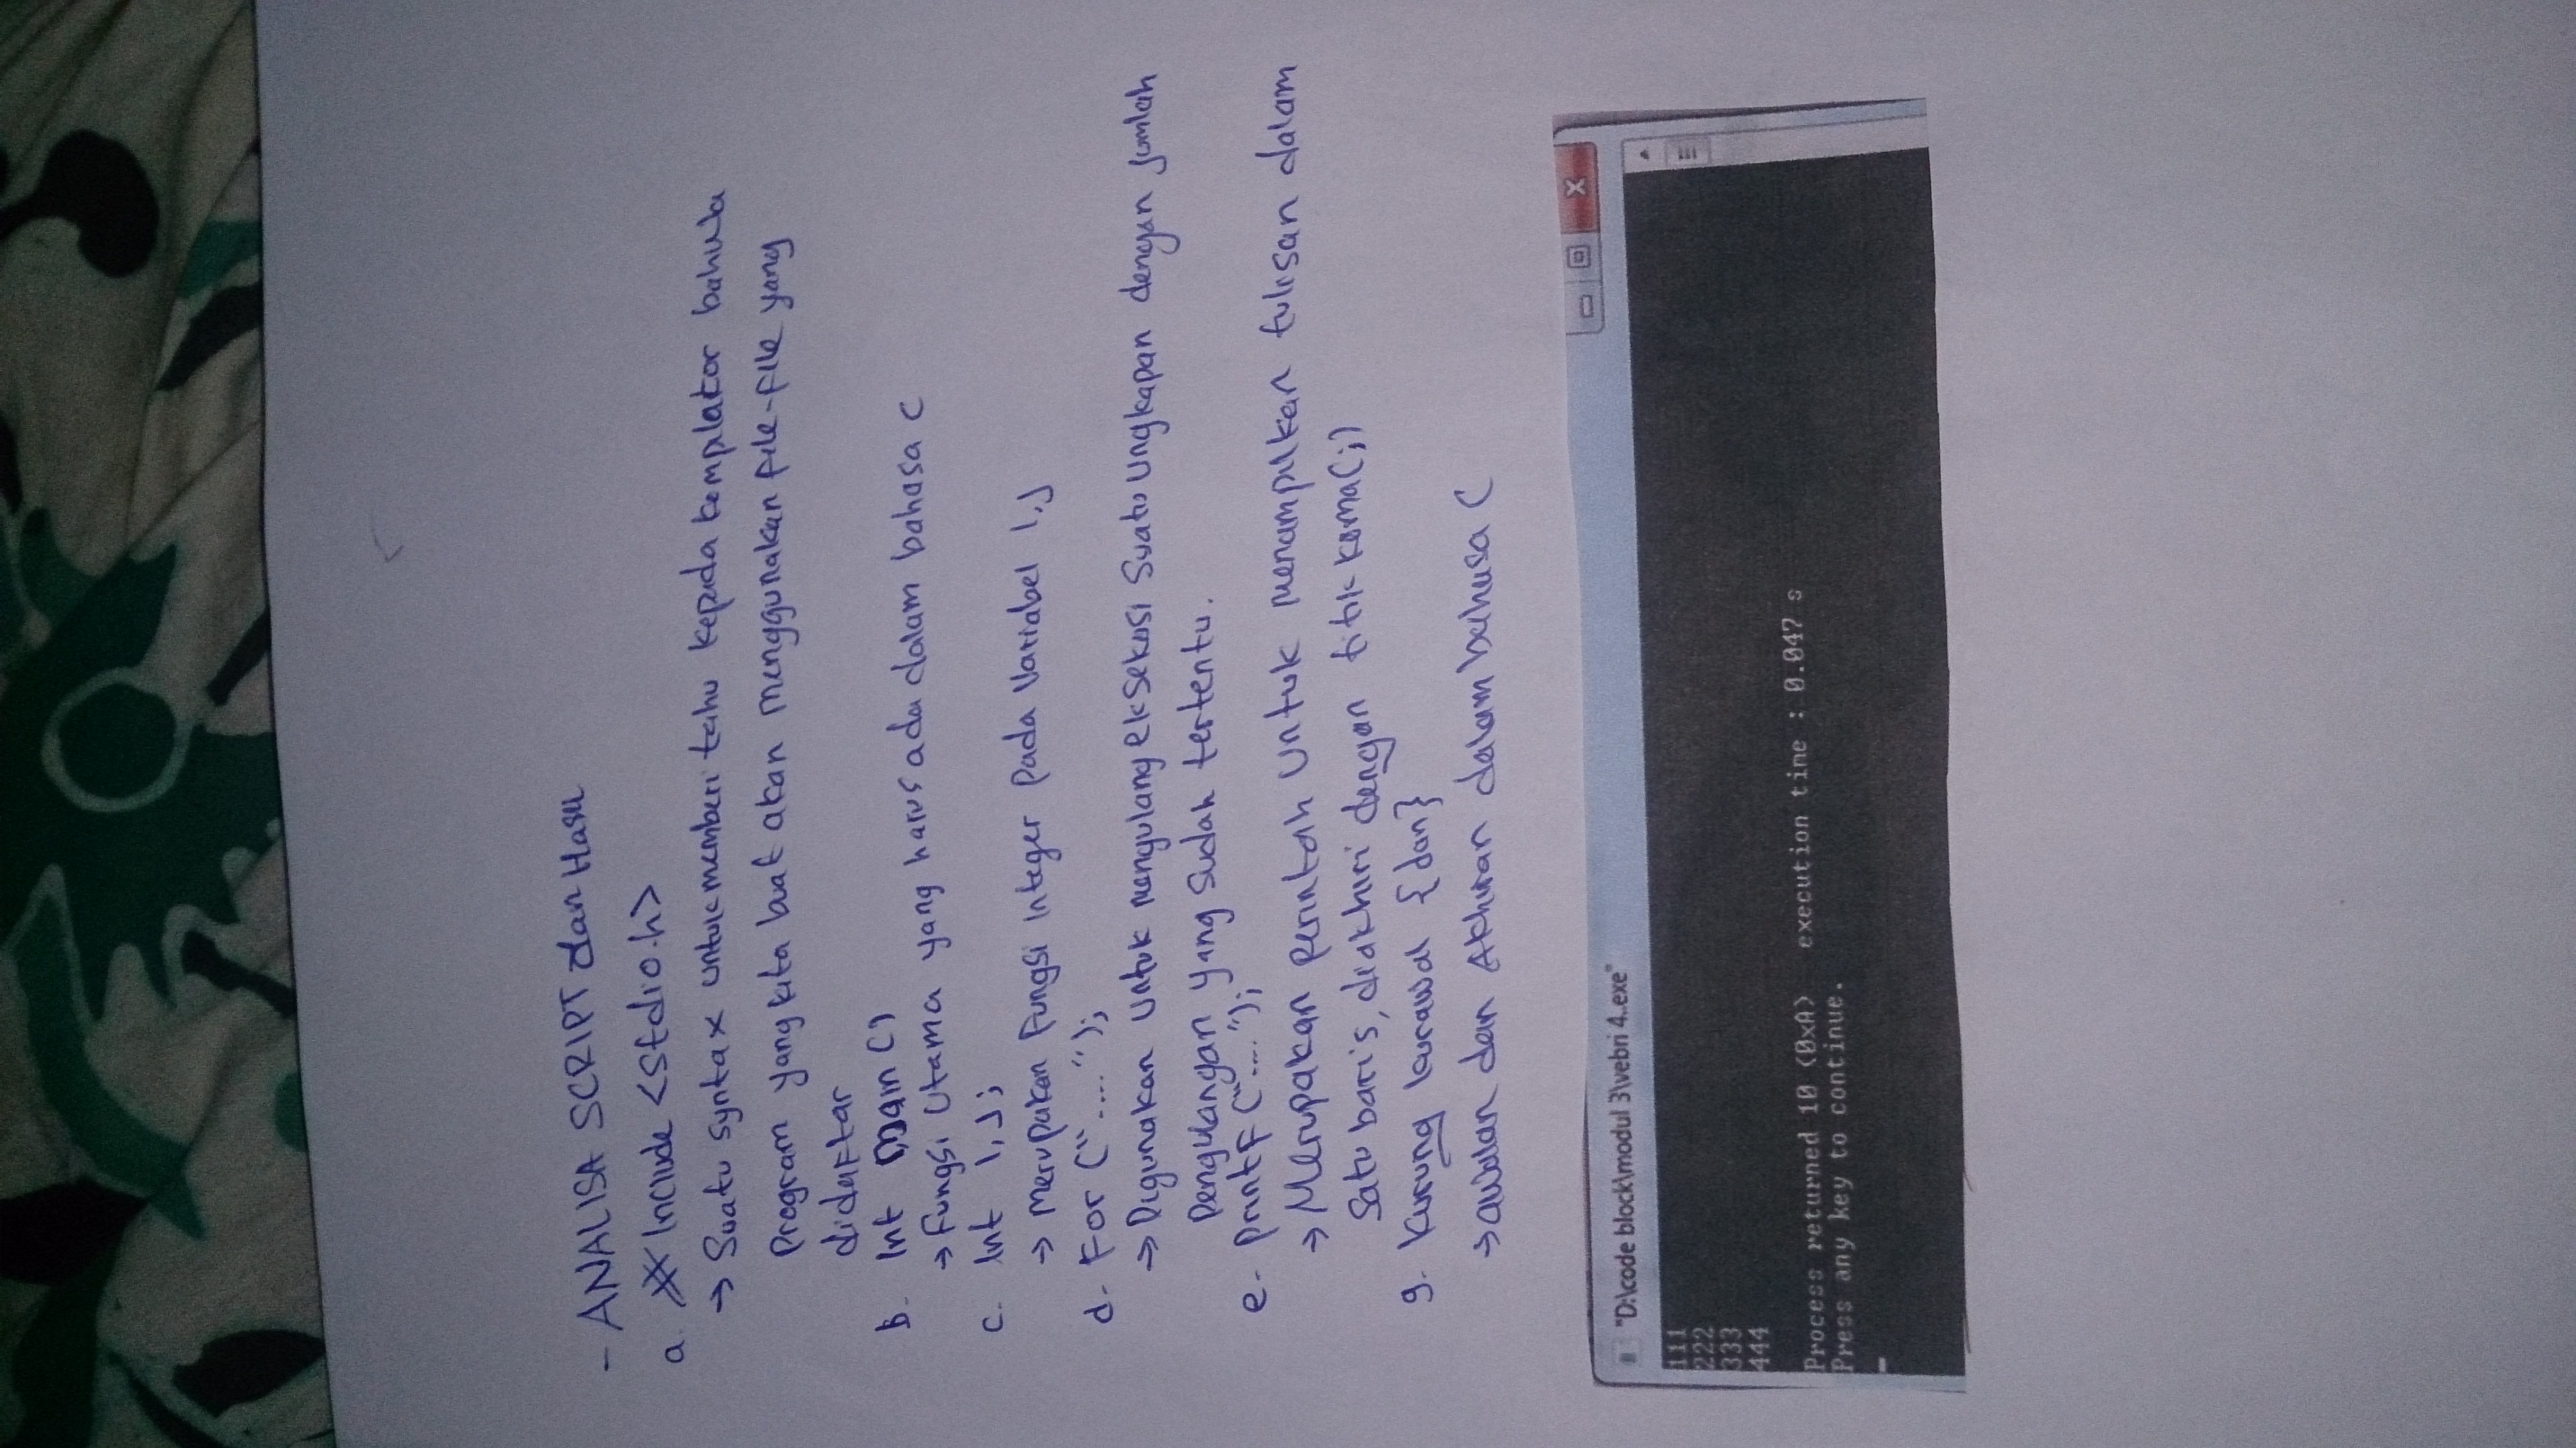 - ANALISA SCRIPT dan Hasil
a. # Include <stdio.h>
→ Suatu syntax untuk memberi tahu kepada kompilator bahwa
Program yang kita buat akan menggunakan file-file yang
didaftar
b. Int main ()
→ Fungsi Utama yang harus ada dalam bahasa C
c. Int I, J;
→ Merupakan Fungsi Integer pada Variabel I, J
d. For ("....");
→ Digunakan Untuk mengulang eksekusi Suatu Ungkapan dengan jumlah
Pengulangan yang sudah tertentu.
e. printf ("....");
→ Merupakan perintah Untuk menampilkan tulisan dalam
Satu baris, diakhiri dengan titik koma (;)
g. Kurung kurawal {dan}
→ awalan dan Akhiran dalam bahasa C
"D:\code block\modul 3\vebri 4..exe"
111
222
333
444
Process returned 10 (0xA) execution time : 0.047 s
Press any key to continue.